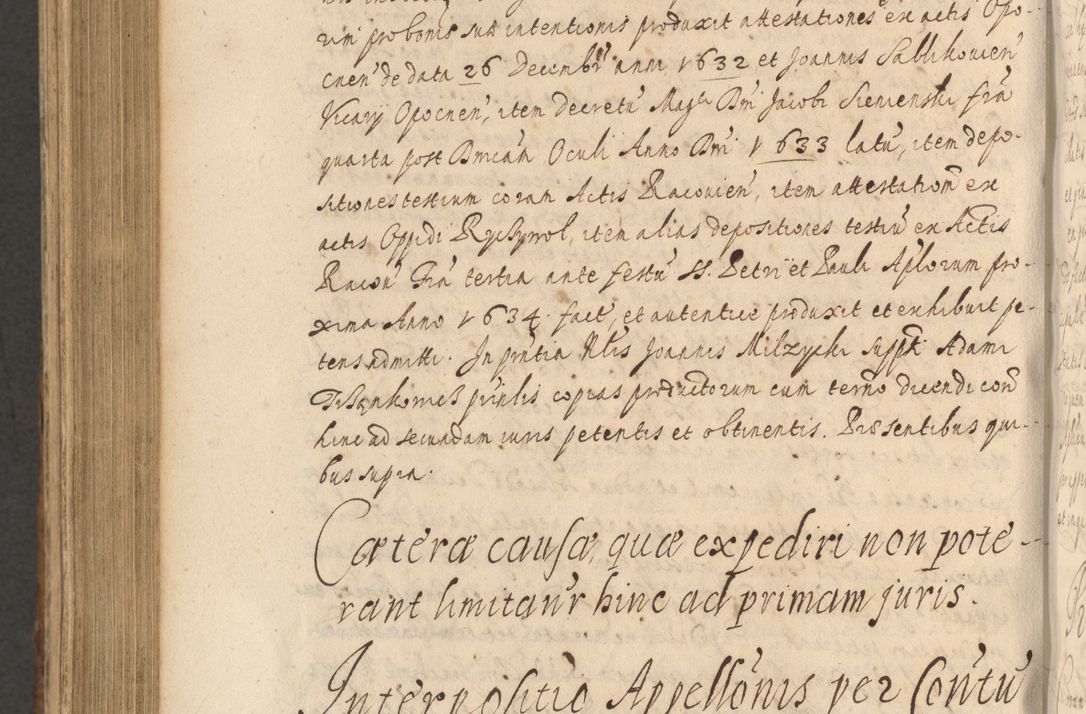 rim probonis suæ intentionis produxit attestationes ex actis Opo-
cnen̄ de data 26 Decembr̄ anni 1632 et Joannis Sablikowien̄
Vicarÿ Opocnen̄, item Decretū Magci Dn̄i Jacobi Sieniensky fr̄a
quarta post Dnicam̄ Oculi Anno Dn̄i 1633 latū, item depo-
sitiones testium coram Actis Racovien̄, item attestation̄ ex
actis Oppidi Ryczywol, item alias depositiones testiū ex Actis
Racov̄ fr̄a tertia ante festū SS. Petri et Pauli Apl̄orum pro-
xima Anno 1634. fact̄, et autentice produxit et exhibuit pe-
tens admitti. In pn̄tia Nlis Joannis Milzycki supptis Adami
pn̄lis copias productorum cum terno dicendi con̄
hinc ad secundam iuris petentis et obtinentis. Præsentibus qui-
bus supra.
Cæteræ causæ, quæ expediri non pote-
rant limitan̄r hinc ad primam juris.
Interpositio Appellōnis per Con̄tū